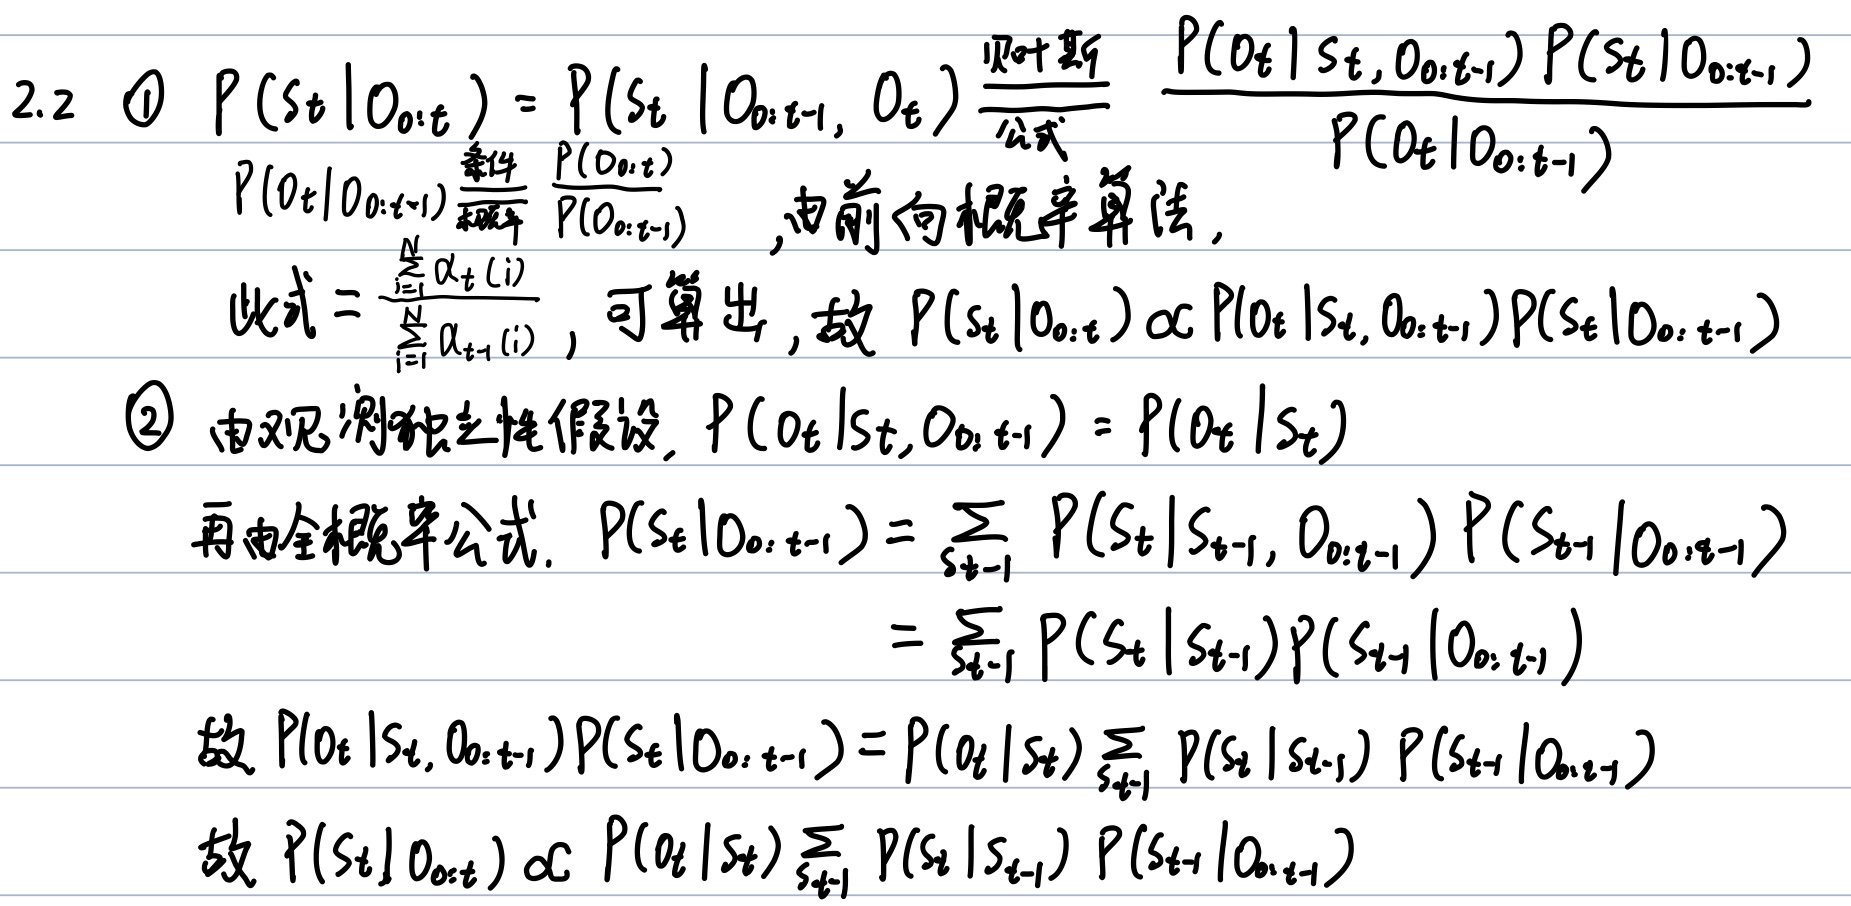 2.2 ① P(S_t|O_{0:t}) = P(S_t|O_{0:t-1}, O_t) \xlongequal[公式]{贝叶斯} \frac{P(O_t|S_t,O_{0:t-1})P(S_t|O_{0:t-1})}{P(O_t|O_{0:t-1})}
P(O_t|O_{0:t-1}) \xlongequal[概率]{条件} \frac{P(O_{0:t})}{P(O_{0:t-1})} ,由前向概率算法,
此式 = \frac{\sum_{i=1}^{N} α_t(i)}{\sum_{i=1}^{N} α_{t-1}(i)}, 可算出,故 P(S_t|O_{0:t}) ∝ P(O_t|S_t,O_{0:t-1})P(S_t|O_{0:t-1})
② 由观测独立性假设, P(O_t|S_t,O_{0:t-1}) = P(O_t|S_t)
再由全概率公式. P(S_t|O_{0:t-1}) = \sum_{S_{t-1}} P(S_t|S_{t-1},O_{0:t-1})P(S_{t-1}|O_{0:t-1})
= \sum_{S_{t-1}} P(S_t|S_{t-1})P(S_{t-1}|O_{0:t-1})
故 P(O_t|S_t,O_{0:t-1})P(S_t|O_{0:t-1}) = P(O_t|S_t) \sum_{S_{t-1}} P(S_t|S_{t-1}) P(S_{t-1}|O_{0:t-1})
故 P(S_t|O_{0:t}) ∝ P(O_t|S_t) \sum_{S_{t-1}} P(S_t|S_{t-1}) P(S_{t-1}|O_{0:t-1})